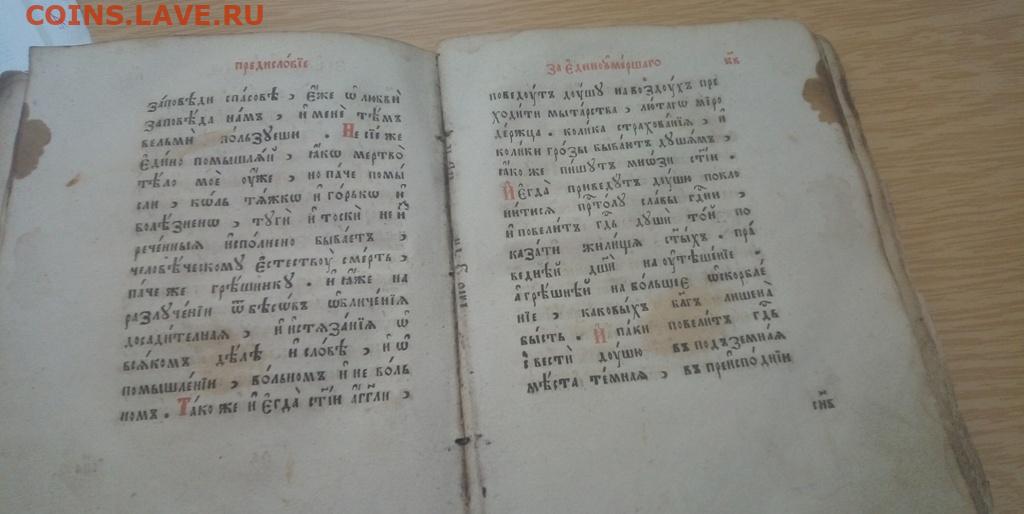 COINS.LAVE.RU
предисло́вїе
за́повѣди спа́совѣ , є҆́же ѡ҆ любвѝ
запове́да на́мъ , и҆ менѐ тѣ́мъ
вельмѝ по́льзуеши . Не сїе́ же
є҆ди́но помышлѧ́й , ꙗ҆́кѡ мертво̀
тѣ́ло моѐ оу҆́же , но па́че помы́
сли , ко́ль тѧ́жкѡ и҆ го́рькѡ и҆
болѣ́зненѡ , тугѝ и҆ тоскѝ не и҆з
рече́нныѧ и҆спо́лнено быва́етъ ,
человѣ́ческому є҆стествоу̀ сме́рть ,
па́че же грѣ́шнику . и҆ ꙗ҆́же на
разлуче́нїи ѿ бѣсѡ́въ ѡ҆бличе́нїѧ
досади́тельнаѧ , и҆ и҆стѧза́нїѧ ѡ҆
всѧ́комъ дѣ́лѣ и҆ сло́вѣ , и҆ ѡ҆
помышле́нїи , во́льномъ и҆ не во́ль
номъ . Та́ко же и҆ є҆гда̀ ст҃і́и а҆́гг҃ли ,
За є҆динооумершаго
поведꙋ́тъ дꙋ́шу на во́здухъ пре
ходи́ти мыта́рства , лю́тагѡ миро
де́ржца . коли́ка страхова́нїѧ , и҆
коли́ки гро́зы быва́ютъ дꙋша́мъ ,
ꙗ҆́ко же пи́шутъ мно́зи ст҃і́и .
И҆ є҆гда̀ приведу́тъ дꙋ́шю покло
ни́тисѧ прⷭ҇то́лу сла́вы гдⷭ҇ни ,
и҆ повели́тъ гдⷭ҇ь души то́й по
каза́ти жили́щѧ ст҃ы́хъ . пра́
веднѣй дш҃и на оу҆тѣше́нїе
а҆ грѣ́шнѣй на бо́льшіе ѡ҆скорбле́
нїе , каковы́хъ бл҃гъ лишена̀
бы́сть . И҆ па́ки повели́тъ гдⷭ҇ь
свестѝ дꙋ́шю въ подъзе́мнаѧ
мѣ́ста те́мнаѧ , въ преиспо́днїи